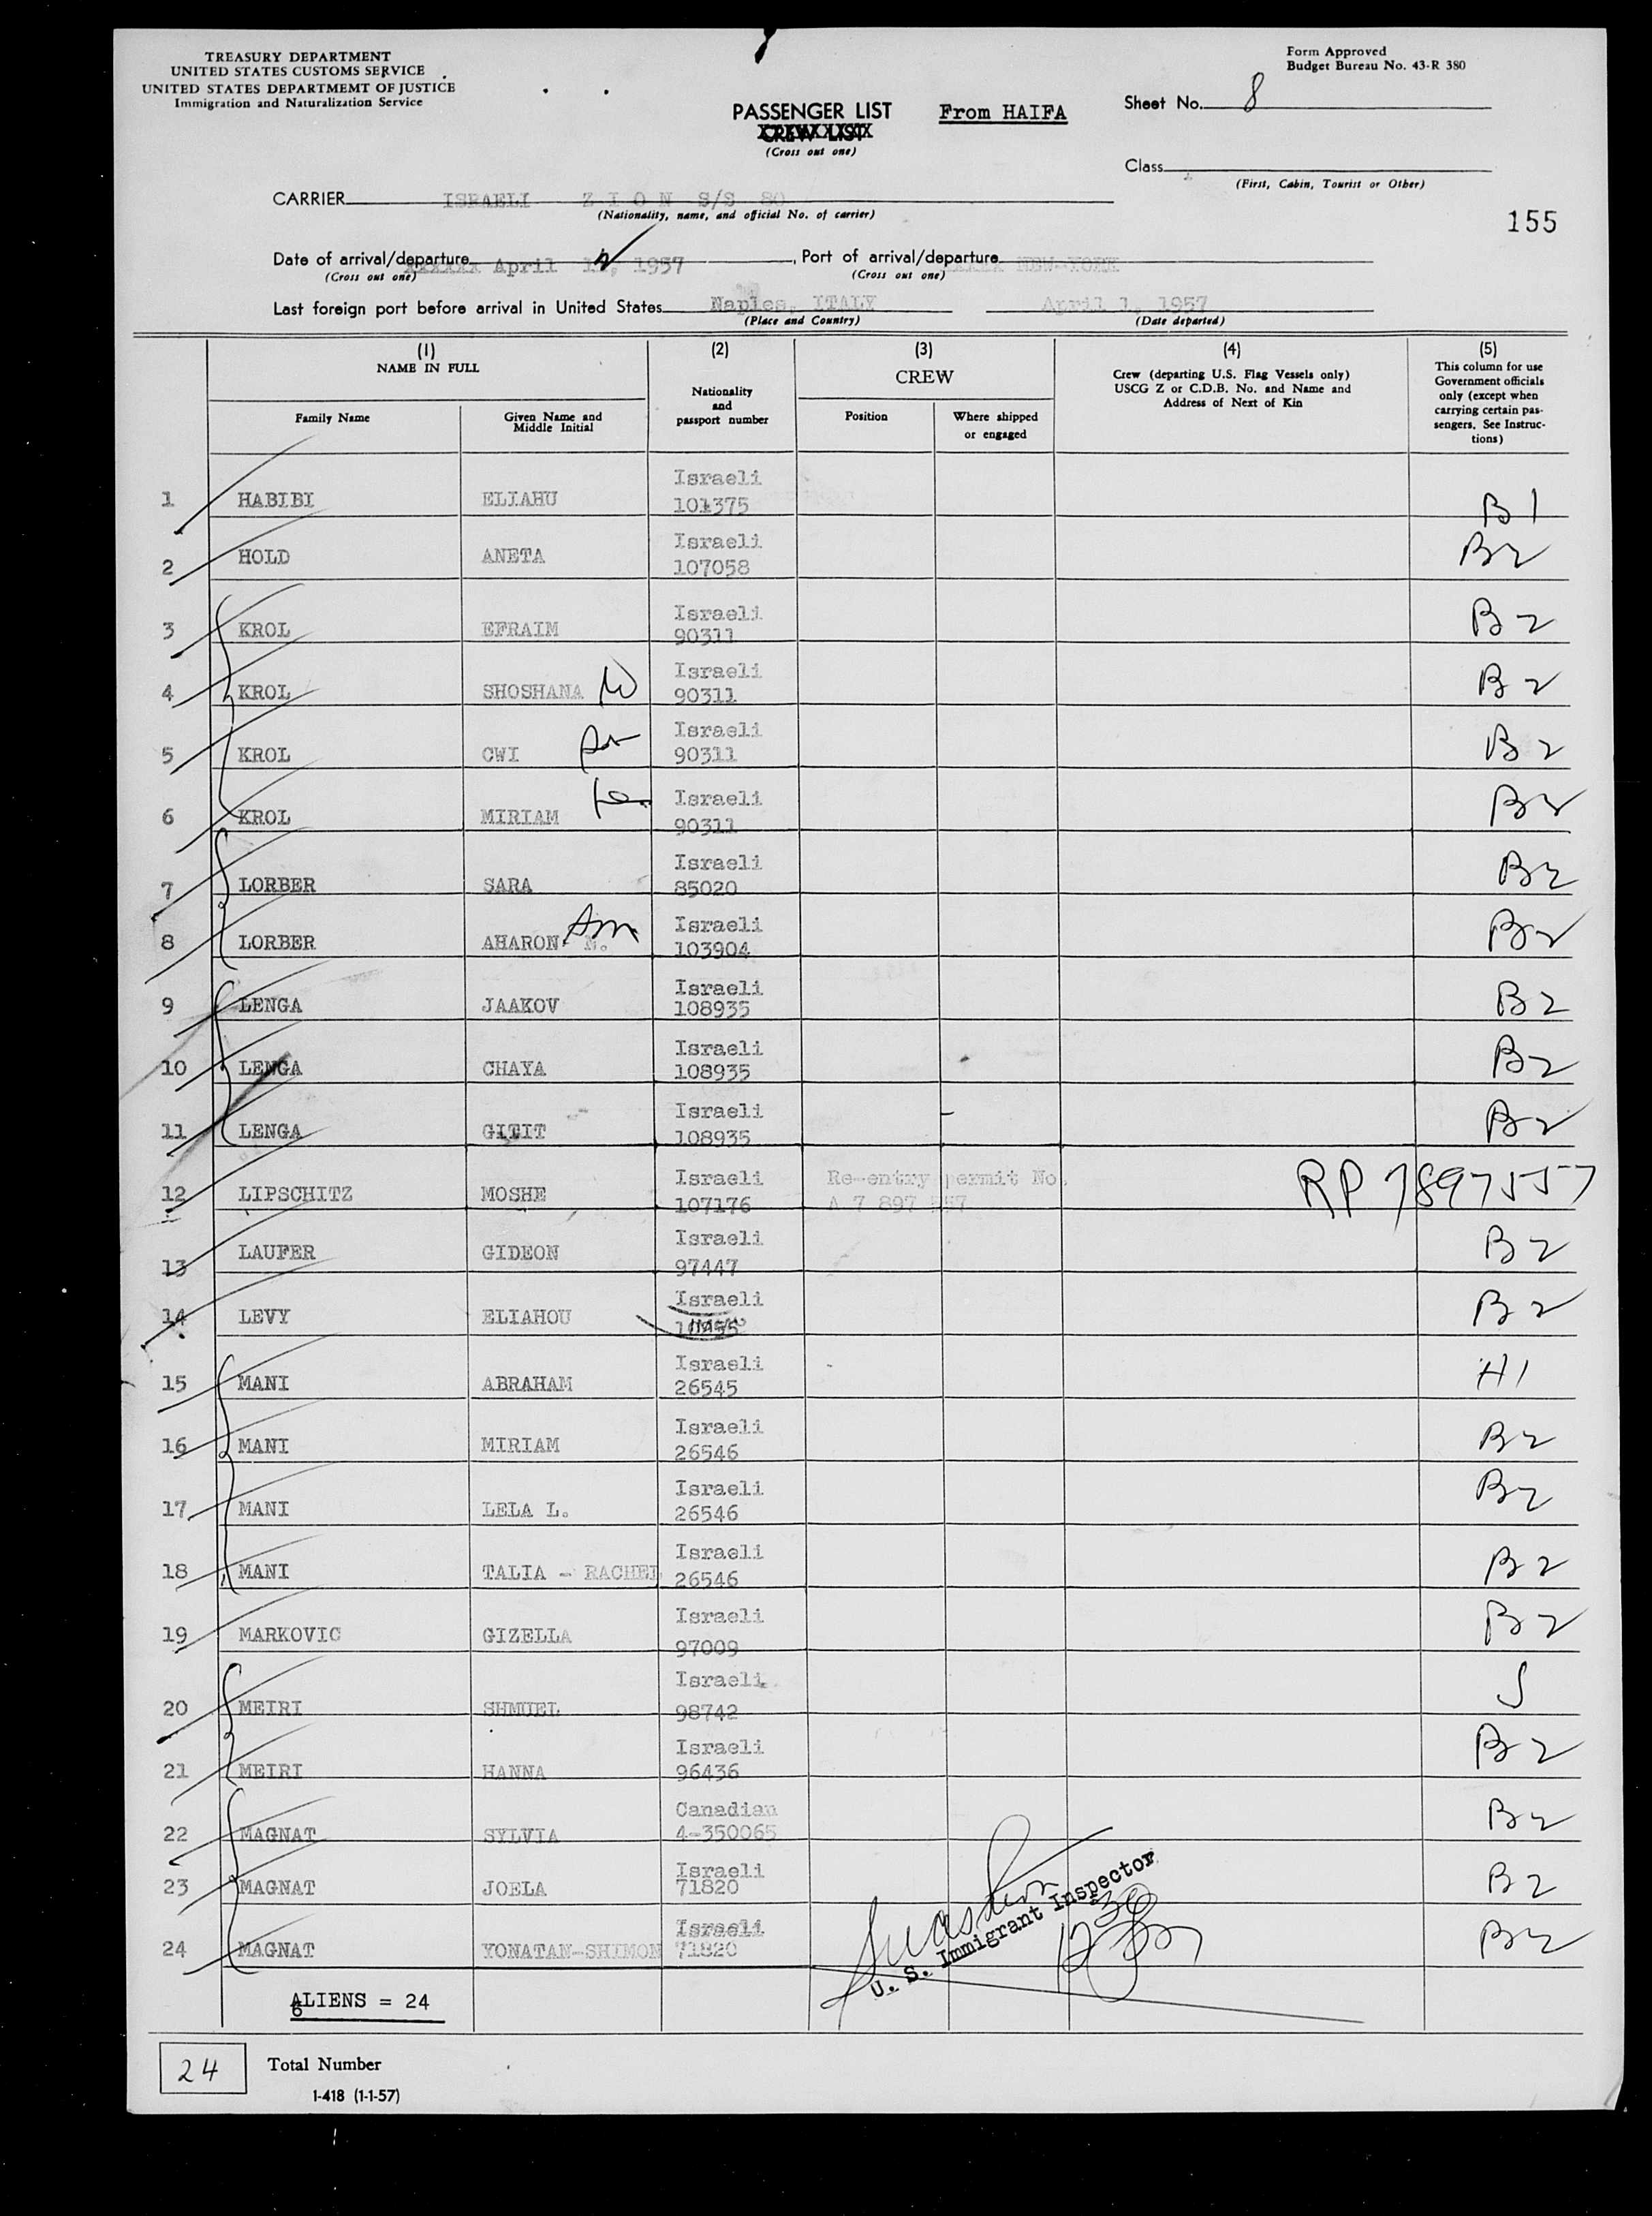 TREASURY DEPARTMENT
UNITED STATES CUSTOMS SERVICE
UNITED STATES DEPARTMEMT OF JUSTICE
Immigration and Naturalization Service
Form Approved
Budget Bureau No. 43-R 380
PASSENGER LIST From HAIFA
CREW LIST
(Cross out one)
Sheet No. 8
Class
(First, Cabin, Tourist or Other)
CARRIER ISRAELI Z I O N S/S 80
(Nationality, name, and official No. of carrier)
155
Date of arrival/departure April 1, 1957, Port of arrival/departure NEW-YORK
(Cross out one) (Cross out one)
Last foreign port before arrival in United States Naples, ITALY April 1, 1957
(Place and Country) (Date departed)
(1) (2) (3) (4) (5)
NAME IN FULL
Family Name
Given Name and Middle Initial
Nationality and passport number
CREW
Position
Where shipped or engaged
Crew (departing U.S. Flag Vessels only)
USCG Z or C.D.B. No. and Name and
Address of Next of Kin
This column for use
Government officials
only (except when
carrying certain pas-
sengers. See Instruc-
tions)
1 HABIBI ELIAHU Israeli 101375 B1
2 HOLD ANETA Israeli 107058 B2
3 KROL EFRAIM Israeli 90311 B2
4 KROL SHOSHANA W Israeli 90311 B2
5 KROL CWI Israeli 90311 B2
6 KROL MIRIAM Israeli 90311 B2
7 LORBER SARA Israeli 85020 B2
8 LORBER AHARON N. Israeli 103904 B2
9 LENGA JAAKOV Israeli 108935 B2
10 LENGA CHAYA Israeli 108935 B2
11 LENGA GITIT Israeli 108935 B2
12 LIPSCHITZ MOSHE Israeli 107176 Re-entry permit No. A 7 897 557 RP 7897557
13 LAUFER GIDEON Israeli 97447 B2
14 LEVY ELIAHOU Israeli B2
15 MANI ABRAHAM Israeli 26545 H1
16 MANI MIRIAM Israeli 26546 B2
17 MANI LELA L. Israeli 26546 B2
18 MANI TALIA - RACHEL Israeli 26546 B2
19 MARKOVIC GIZELLA Israeli 97009 B2
20 MEIRI SHMUEL Israeli 98742 S
21 MEIRI HANNA Israeli 96436 B2
22 MAGNAT SYLVIA Canadian 4-350065 B2
23 MAGNAT JOELA Israeli 71820 B2
24 MAGNAT YONATAN-SHIMON Israeli 71820 B2
U. S. Immigrant Inspector
ALIENS = 24
24 Total Number
I-418 (1-1-57)